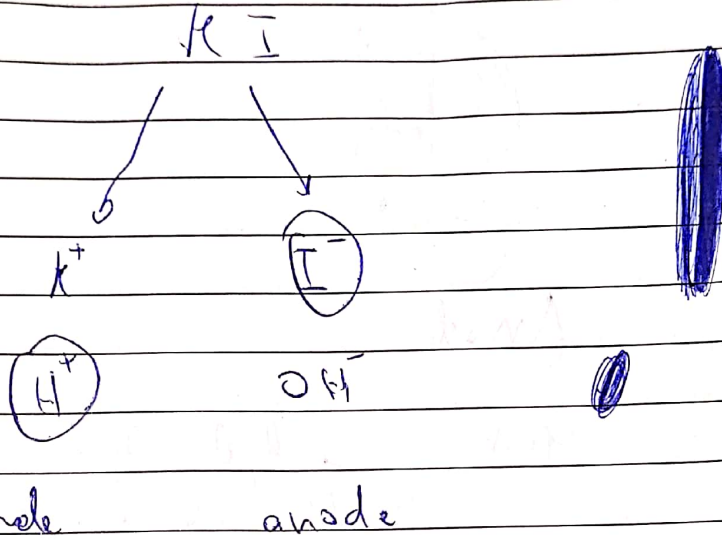 K I
K⁺ I⁻
H⁺ OH⁻
anode